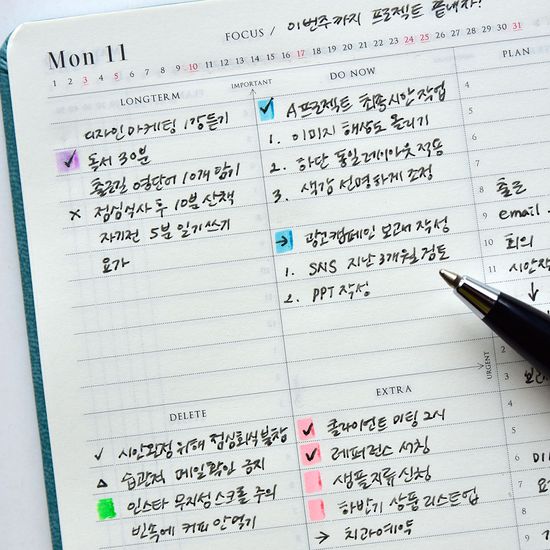 Mon 11
FOCUS / 이번주까지 프로젝트 끝내자!
1 2 3 4 5 6 7 8 9 10 11 12 13 14 15 16 17 18 19 20 21 22 23 24 25 26 27 28 29 30 31
LONGTERM
디자인마케팅 1강듣기
✓ 독서 30분
출근길 영단어 10개 암기
× 점심식사 후 10분 산책
자기전 5분 일기쓰기
요가
IMPORTANT
DO NOW
✓ A프로젝트 최종시안 작업
1. 이미지 해상도 올리기
2. 하단 통일 레이아웃 적용
3. 색감 선명하게 조정
→ 광고캠페인 보고서 작성
1. SNS 지난 3개월 검토
2. PPT 작성
URGENT
PLAN
4
5
6
7
8 출근
9 email
10 회의
11 시안작
↓
3
4
5
6
7
8
9
DELETE
✓ 시안확정 위해 점심회식 불참
△ 습관적 메일확인 금지
인스타 무지성 스크롤 주의
빈속에 커피 안먹기
EXTRA
✓ 클라이언트 미팅 2시
✓ 레퍼런스 서칭
샘플지류 신청
하반기 상품 리스트업
→ 치과예약